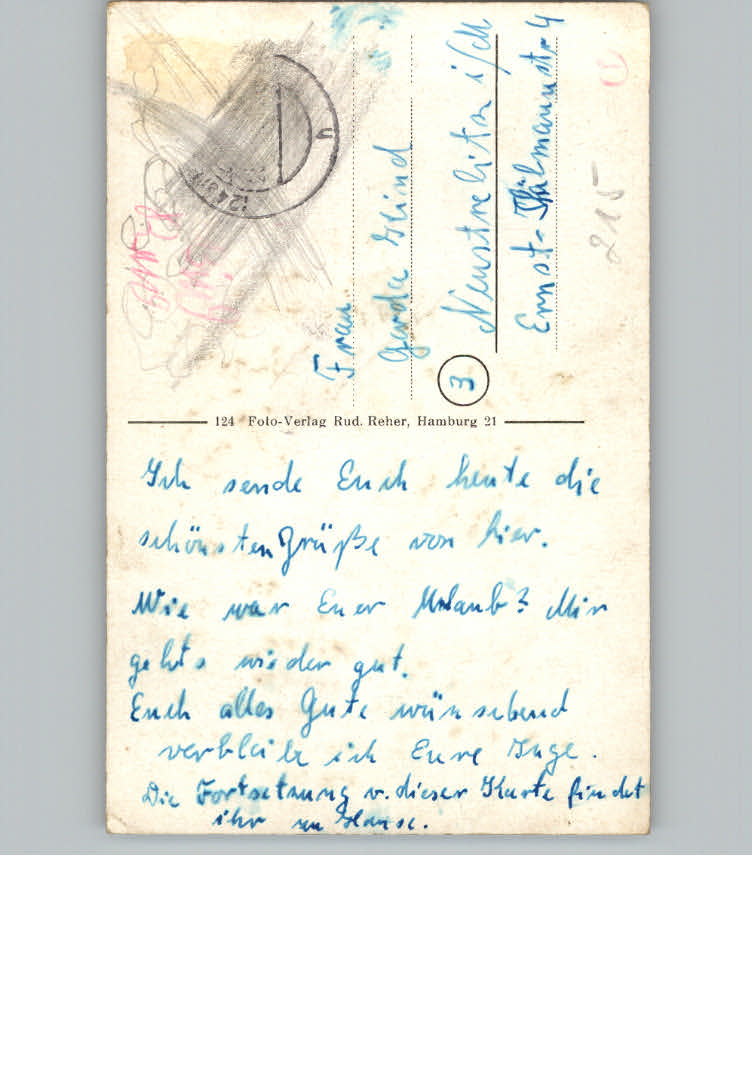 Frau
Gerda
Neustrelitz i/M
Ernst-Thälmannstr 4
3
215
124 Foto-Verlag Rud. Reher, Hamburg 21
Ich sende Euch heute die
schönsten Grüße von hier.
Wie war Euer Urlaub? Mir
gehts wieder gut.
Euch alles Gute wünschend
verbleibe ich Eure Inge.
Die Fortsetzung v. dieser Karte findet
ihr zu Hause.